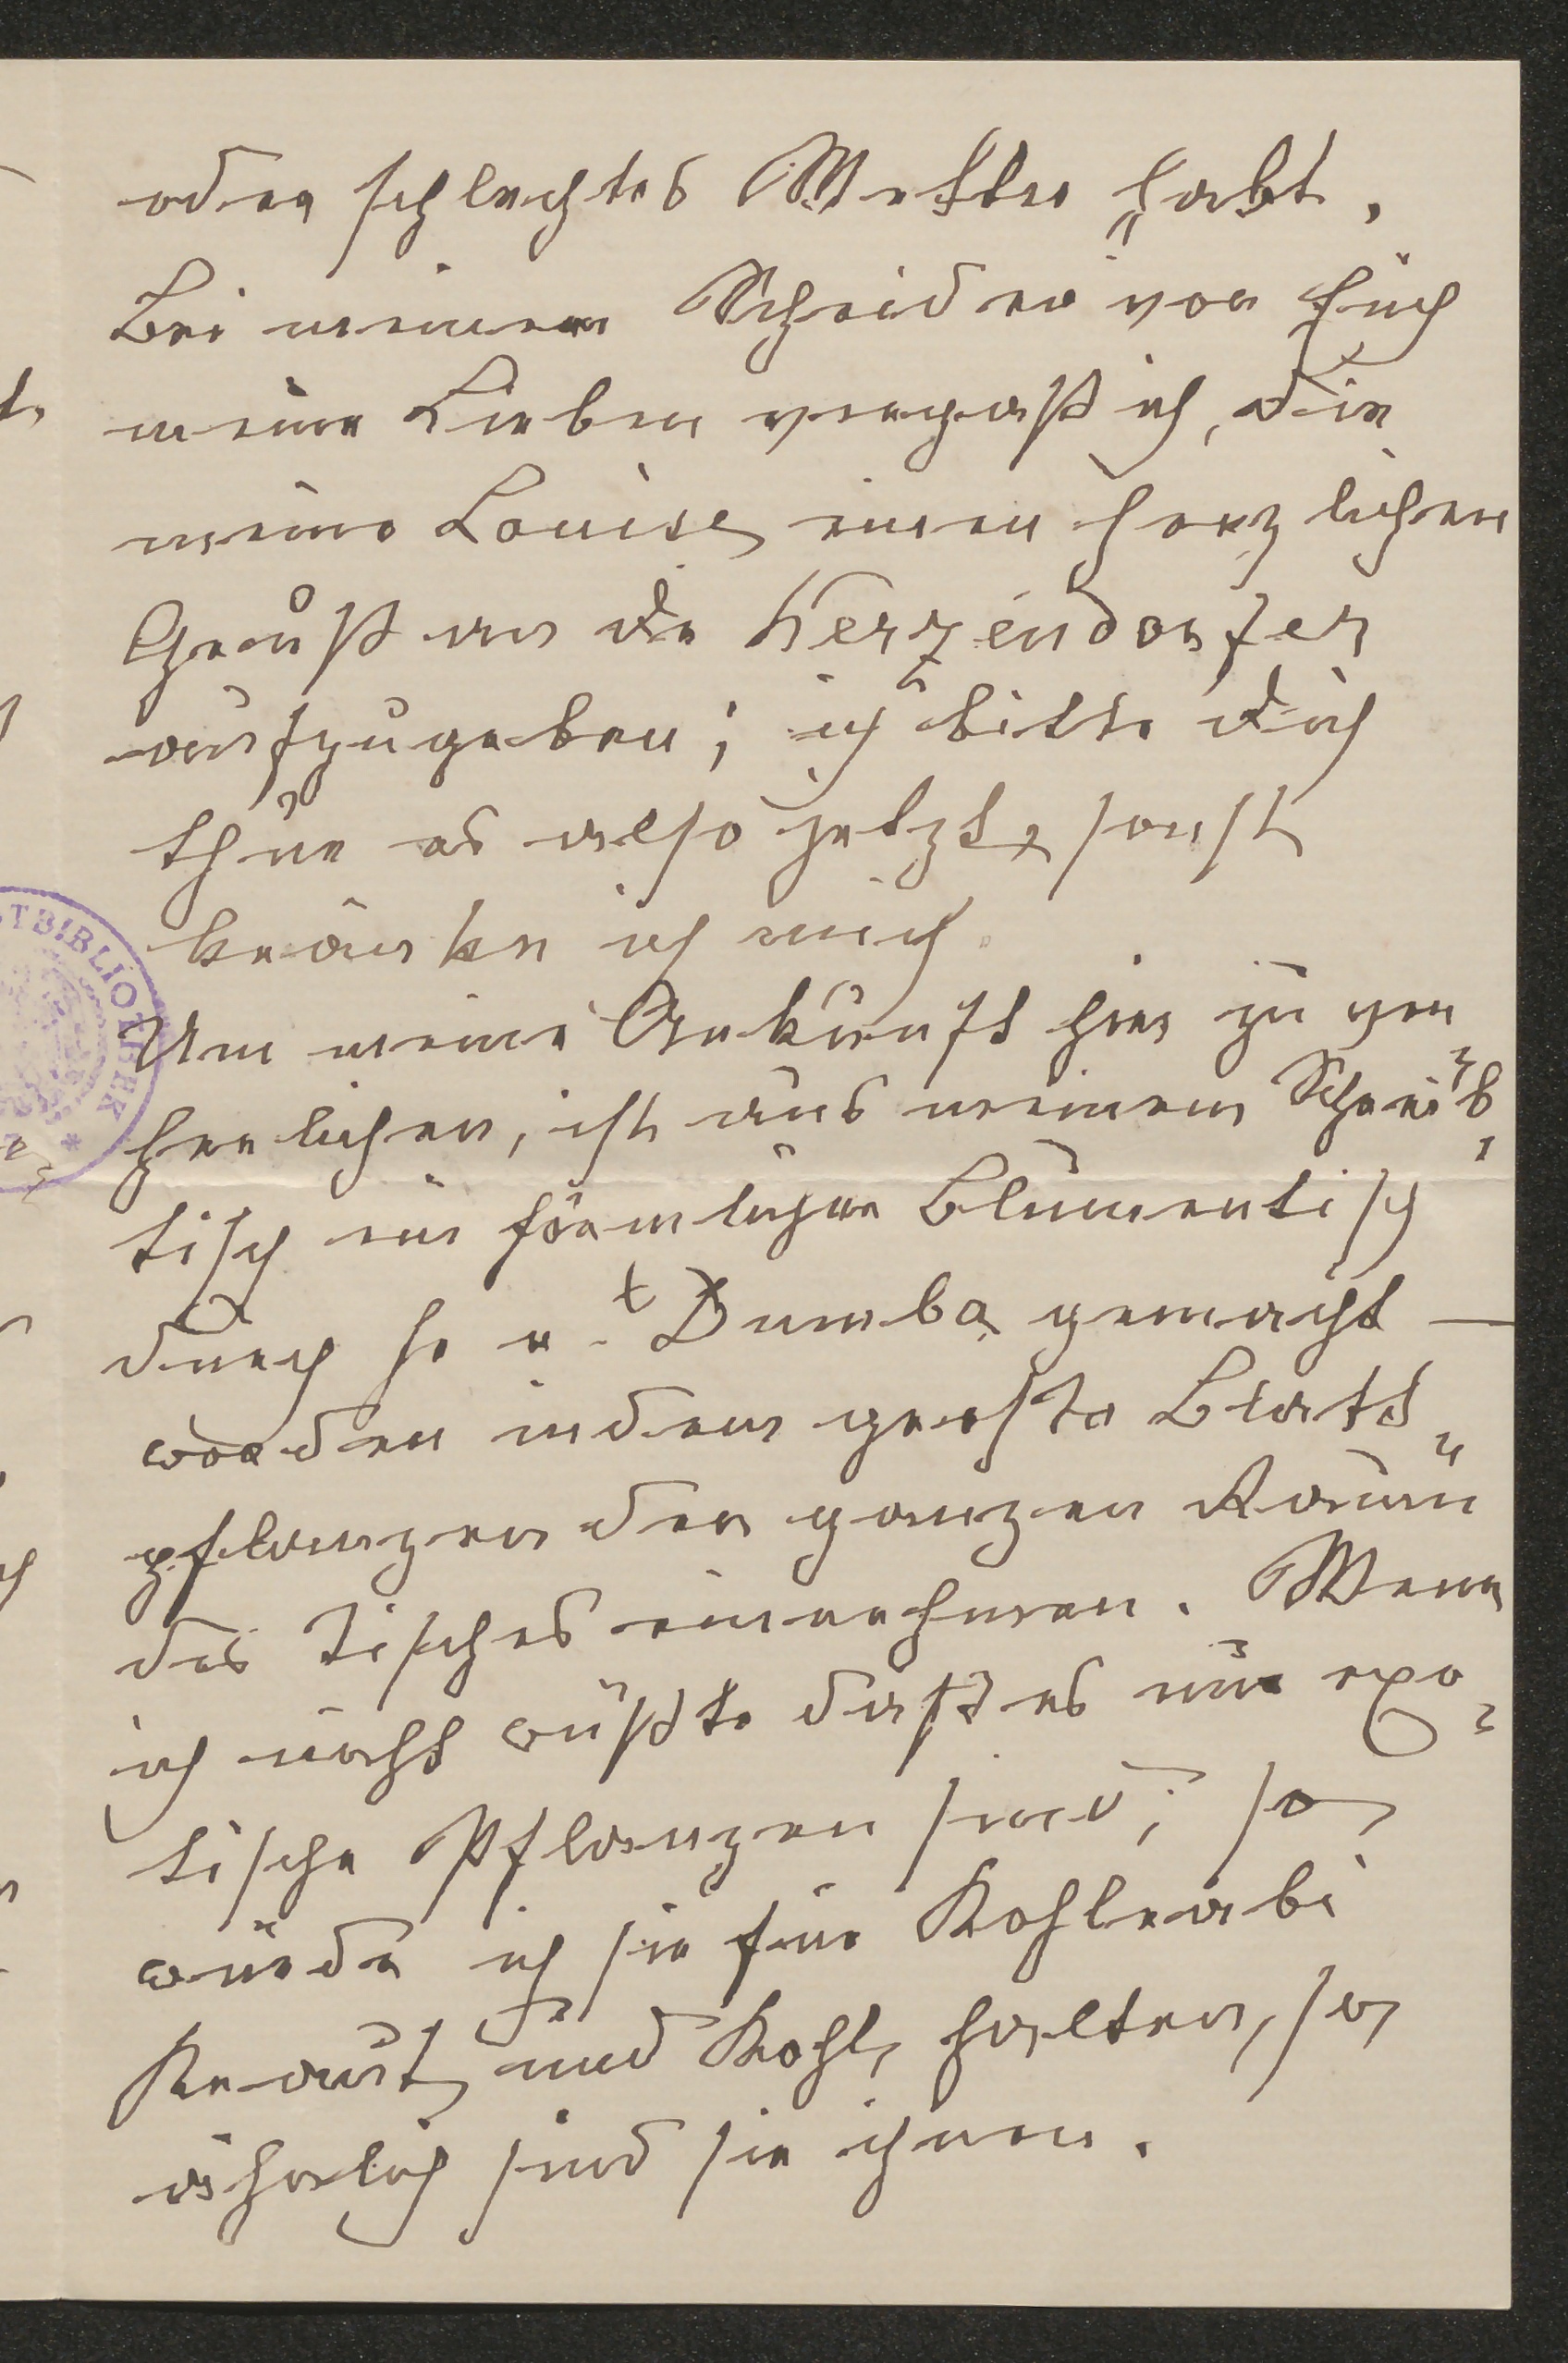 oder schlechtes Wetter habt.
Bei meinem Scheiden von Euch
meine Lieben vergaß ich, Dir
meine Louise einen herzlichen
Gruß an die Herzendorfer
aufzugeben; ich bitte Dich
thue es also jetzt, sonst
kränke ich mich.
Um meine Ankunft hier zu ver„
herrlichen, ist aus meinem Schreib„
tisch ein förmlicher Blumentisch
durch H v. Dumba gemacht —
worden indem große Blatt„
pflanzen den ganzen Raum
des Tisches einnehmen. Wenn
ich nicht wüßte daß es nur exo„
tische Pflanzen sind, so
würde ich sie für Kohlrabi
Kraut und Kohl halten, so
ähnlich sind sie ihnen.
TBIBLIOTHEK *